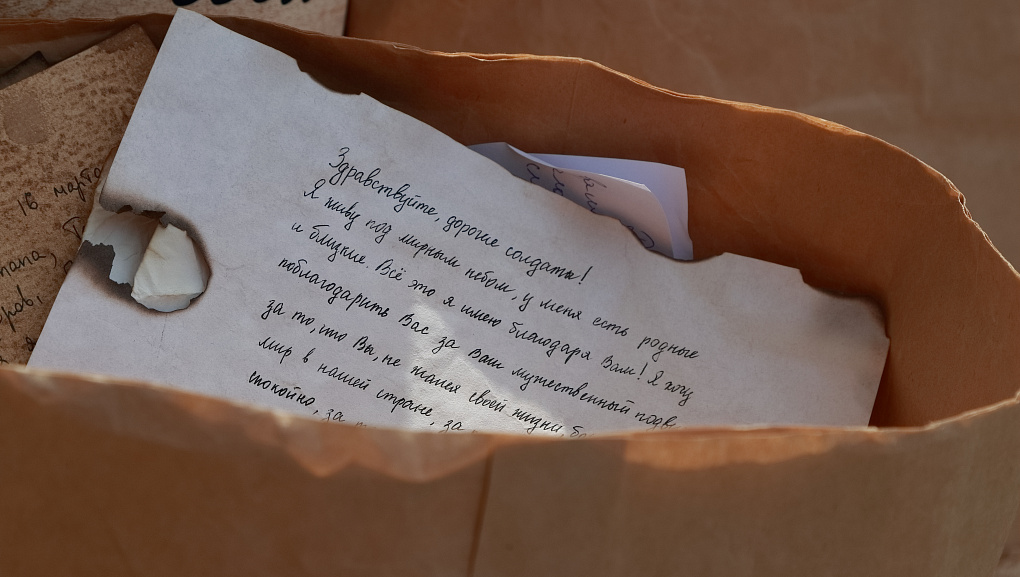 Здравствуйте, дорогие солдаты!
Я живу под мирным небом, у меня есть родные
и близкие. Всё это я имею благодаря Вам! Я хочу
поблагодарить Вас за Ваш мужественный подв
за то, что Вы, не жалея своей жизни, бо
мир в нашей стране, за
спокойно, за
18 марта